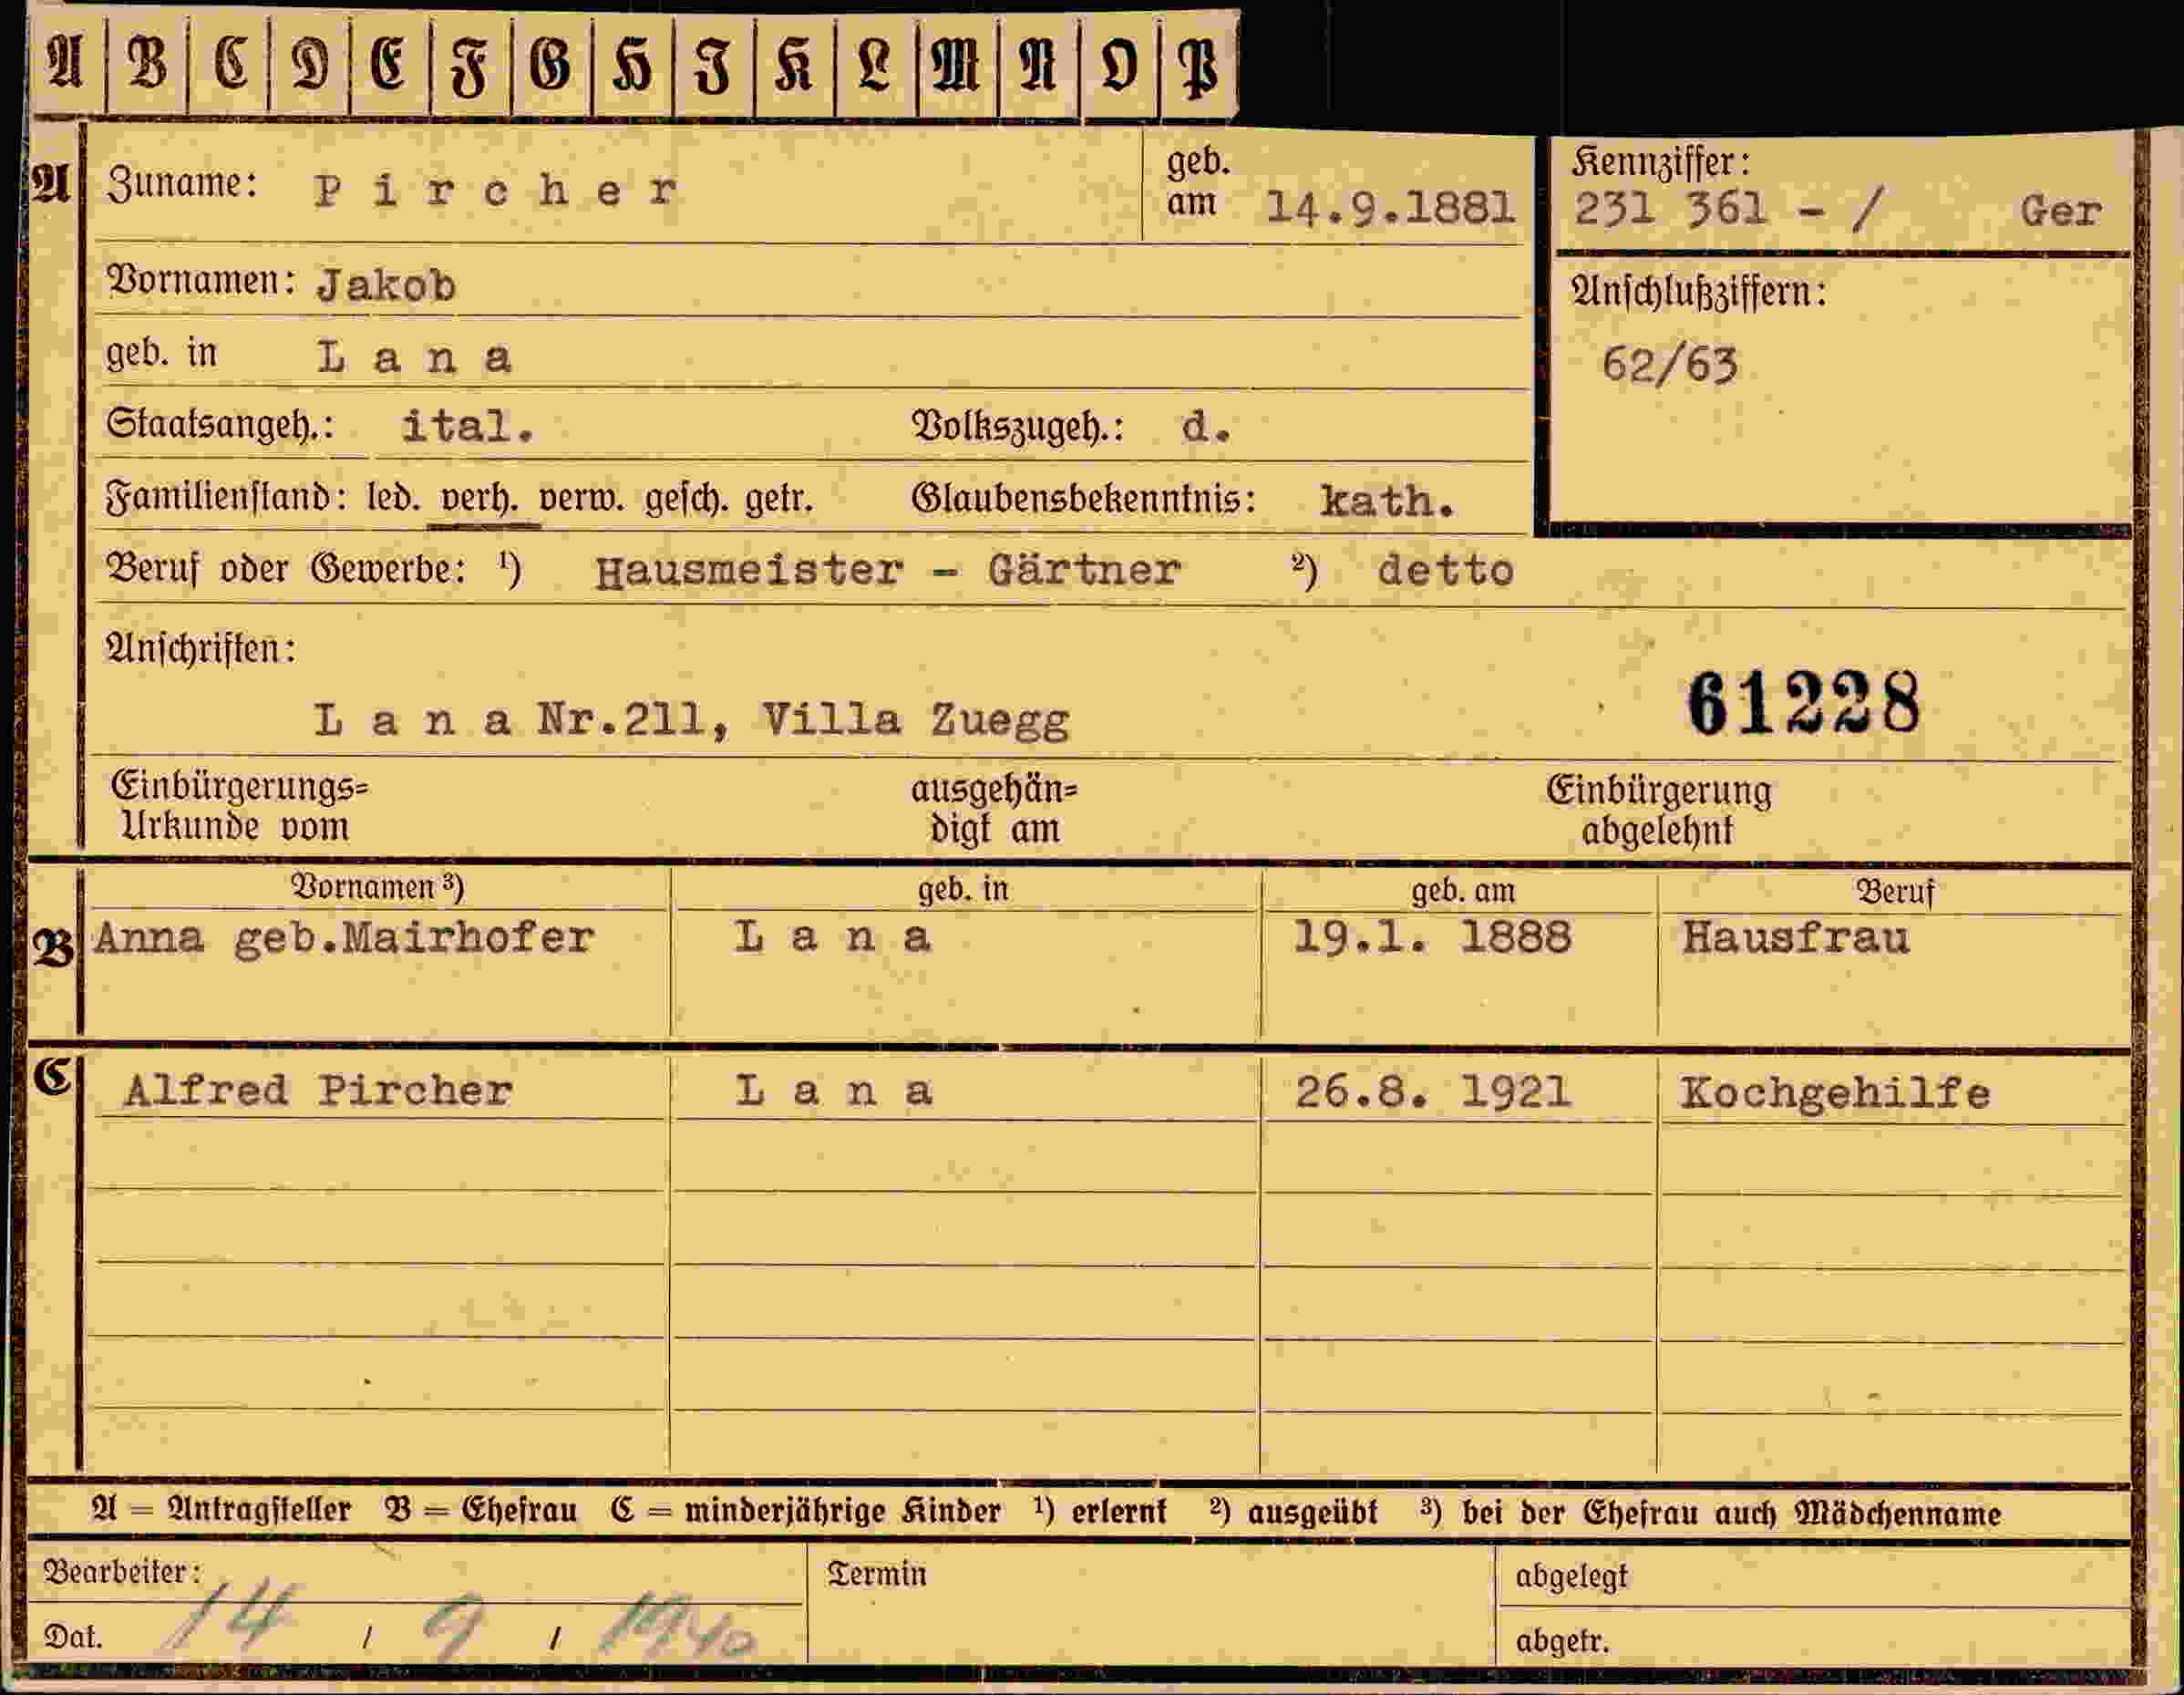 A B C D E F G H I K L M N O P
A Zuname: P i r c h e r geb. am 14.9.1881 Kennziffer: 231 361 - / Ger
Vornamen: Jakob Anschlußziffern:
geb. in L a n a 62/63
Staatsangeh.: ital. Volkszugeh.: d.
Familienstand: led. verh. verw. gesch. getr. Glaubensbekenntnis: kath.
Beruf oder Gewerbe: ¹) Hausmeister - Gärtner ²) detto
Anschriften:
L a n a Nr.211, Villa Zuegg 61228
Einbürgerungs= ausgehän= Einbürgerung
Urkunde vom digt am abgelehnt
Vornamen ³) geb. in geb. am Beruf
B Anna geb.Mairhofer L a n a 19.1. 1888 Hausfrau
C Alfred Pircher L a n a 26.8. 1921 Kochgehilfe
A = Antragsteller B = Ehefrau C = minderjährige Kinder ¹) erlernt ²) ausgeübt ³) bei der Ehefrau auch Mädchenname
Bearbeiter: Termin abgelegt
Dat. 14 / 9 / 1940 abgetr.